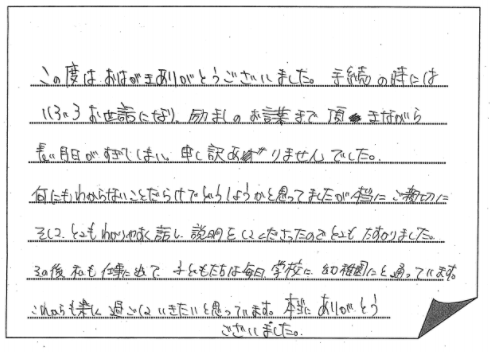 この度は、おはがきありがとうございました。手続の時には
いろいろお世話になり、励ましのお言葉まで頂きながら
長い月日がすぎてしまい、申し訳ありませんでした。
何にもわからないことだらけでどうしようかと思ってましたが本当にご親切に
そして、とてもわかりやすく話し、説明をしてくださったのでとてもたすかりました。
その後、私も仕事に 子どもたちは毎日学校に、幼稚園にと通っています。
これからも楽しく過ごしていきたいと思っています。本当にありがとう
ございました。